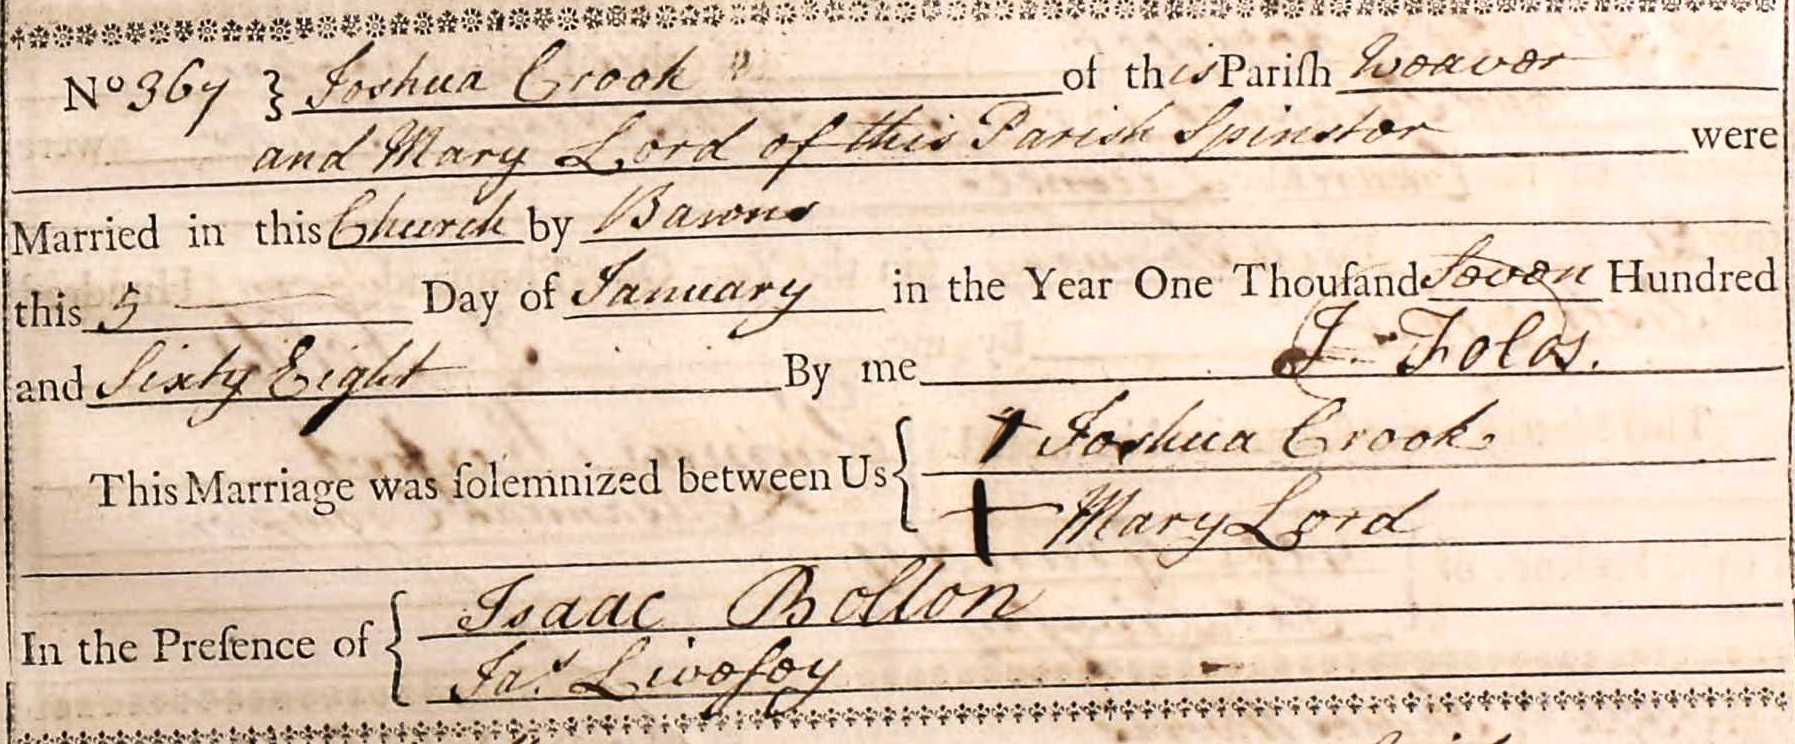 No 367 } Joshua Crook of this Pariſh Weaver
and Mary Lord of this Parish Spinster were
Married in this Church by Bawns
this 5 Day of January in the Year One Thouſand Seven Hundred
and Sixty Eight By me J. Folds.
This Marriage was ſolemnized between Us { + Joshua Crook
+ Mary Lord
In the Preſence of { Isaac Bolton
Jas Liveſey